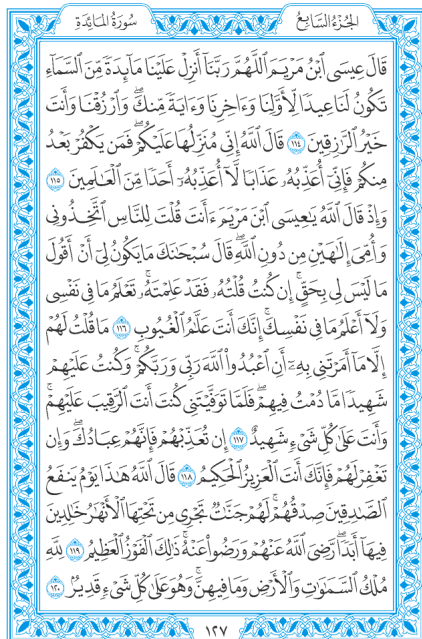 الجُزْءُ السَّابِعُ سُورَةُ المَائِدَةِ
قَالَ عِيسَى ٱبْنُ مَرْيَمَ ٱللَّهُمَّ رَبَّنَآ أَنزِلْ عَلَيْنَا مَآئِدَةً مِّنَ ٱلسَّمَآءِ
تَكُونُ لَنَا عِيدًا لِّأَوَّلِنَا وَءَاخِرِنَا وَءَايَةً مِّنكَۖ وَٱرْزُقْنَا وَأَنتَ
خَيْرُ ٱلرَّٰزِقِينَ ١١٤ قَالَ ٱللَّهُ إِنِّي مُنَزِّلُهَا عَلَيْكُمْۖ فَمَن يَكْفُرْ بَعْدُ
مِنكُمْ فَإِنِّيٓ أُعَذِّبُهُۥ عَذَابًا لَّآ أُعَذِّبُهُۥٓ أَحَدًا مِّنَ ٱلْعَٰلَمِينَ ١١٥
وَإِذْ قَالَ ٱللَّهُ يَٰعِيسَى ٱبْنَ مَرْيَمَ ءَأَنتَ قُلْتَ لِلنَّاسِ ٱتَّخِذُونِي
وَأُمِّيَ إِلَٰهَيْنِ مِن دُونِ ٱللَّهِۖ قَالَ سُبْحَٰنَكَ مَا يَكُونُ لِيٓ أَنْ أَقُولَ
مَا لَيْسَ لِي بِحَقٍّۚ إِن كُنتُ قُلْتُهُۥ فَقَدْ عَلِمْتَهُۥۚ تَعْلَمُ مَا فِي نَفْسِي
وَلَآ أَعْلَمُ مَا فِي نَفْسِكَۚ إِنَّكَ أَنتَ عَلَّٰمُ ٱلْغُيُوبِ ١١٦ مَا قُلْتُ لَهُمْ
إِلَّا مَآ أَمَرْتَنِي بِهِۦٓ أَنِ ٱعْبُدُواْ ٱللَّهَ رَبِّي وَرَبَّكُمْۚ وَكُنتُ عَلَيْهِمْ
شَهِيدًا مَّا دُمْتُ فِيهِمْۖ فَلَمَّا تَوَفَّيْتَنِي كُنتَ أَنتَ ٱلرَّقِيبَ عَلَيْهِمْۚ
وَأَنتَ عَلَىٰ كُلِّ شَيْءٍ شَهِيدٌ ١١٧ إِن تُعَذِّبْهُمْ فَإِنَّهُمْ عِبَادُكَۖ وَإِن
تَغْفِرْ لَهُمْ فَإِنَّكَ أَنتَ ٱلْعَزِيزُ ٱلْحَكِيمُ ١١٨ قَالَ ٱللَّهُ هَٰذَا يَوْمُ يَنفَعُ
ٱلصَّٰدِقِينَ صِدْقُهُمْۚ لَهُمْ جَنَّٰتٌ تَجْرِي مِن تَحْتِهَا ٱلْأَنْهَٰرُ خَٰلِدِينَ
فِيهَآ أَبَدًاۖ رَّضِيَ ٱللَّهُ عَنْهُمْ وَرَضُواْ عَنْهُۚ ذَٰلِكَ ٱلْفَوْزُ ٱلْعَظِيمُ ١١٩ لِلَّهِ
مُلْكُ ٱلسَّمَٰوَٰتِ وَٱلْأَرْضِ وَمَا فِيهِنَّۚ وَهُوَ عَلَىٰ كُلِّ شَيْءٍ قَدِيرٌۢ ١٢٠
١٢٧